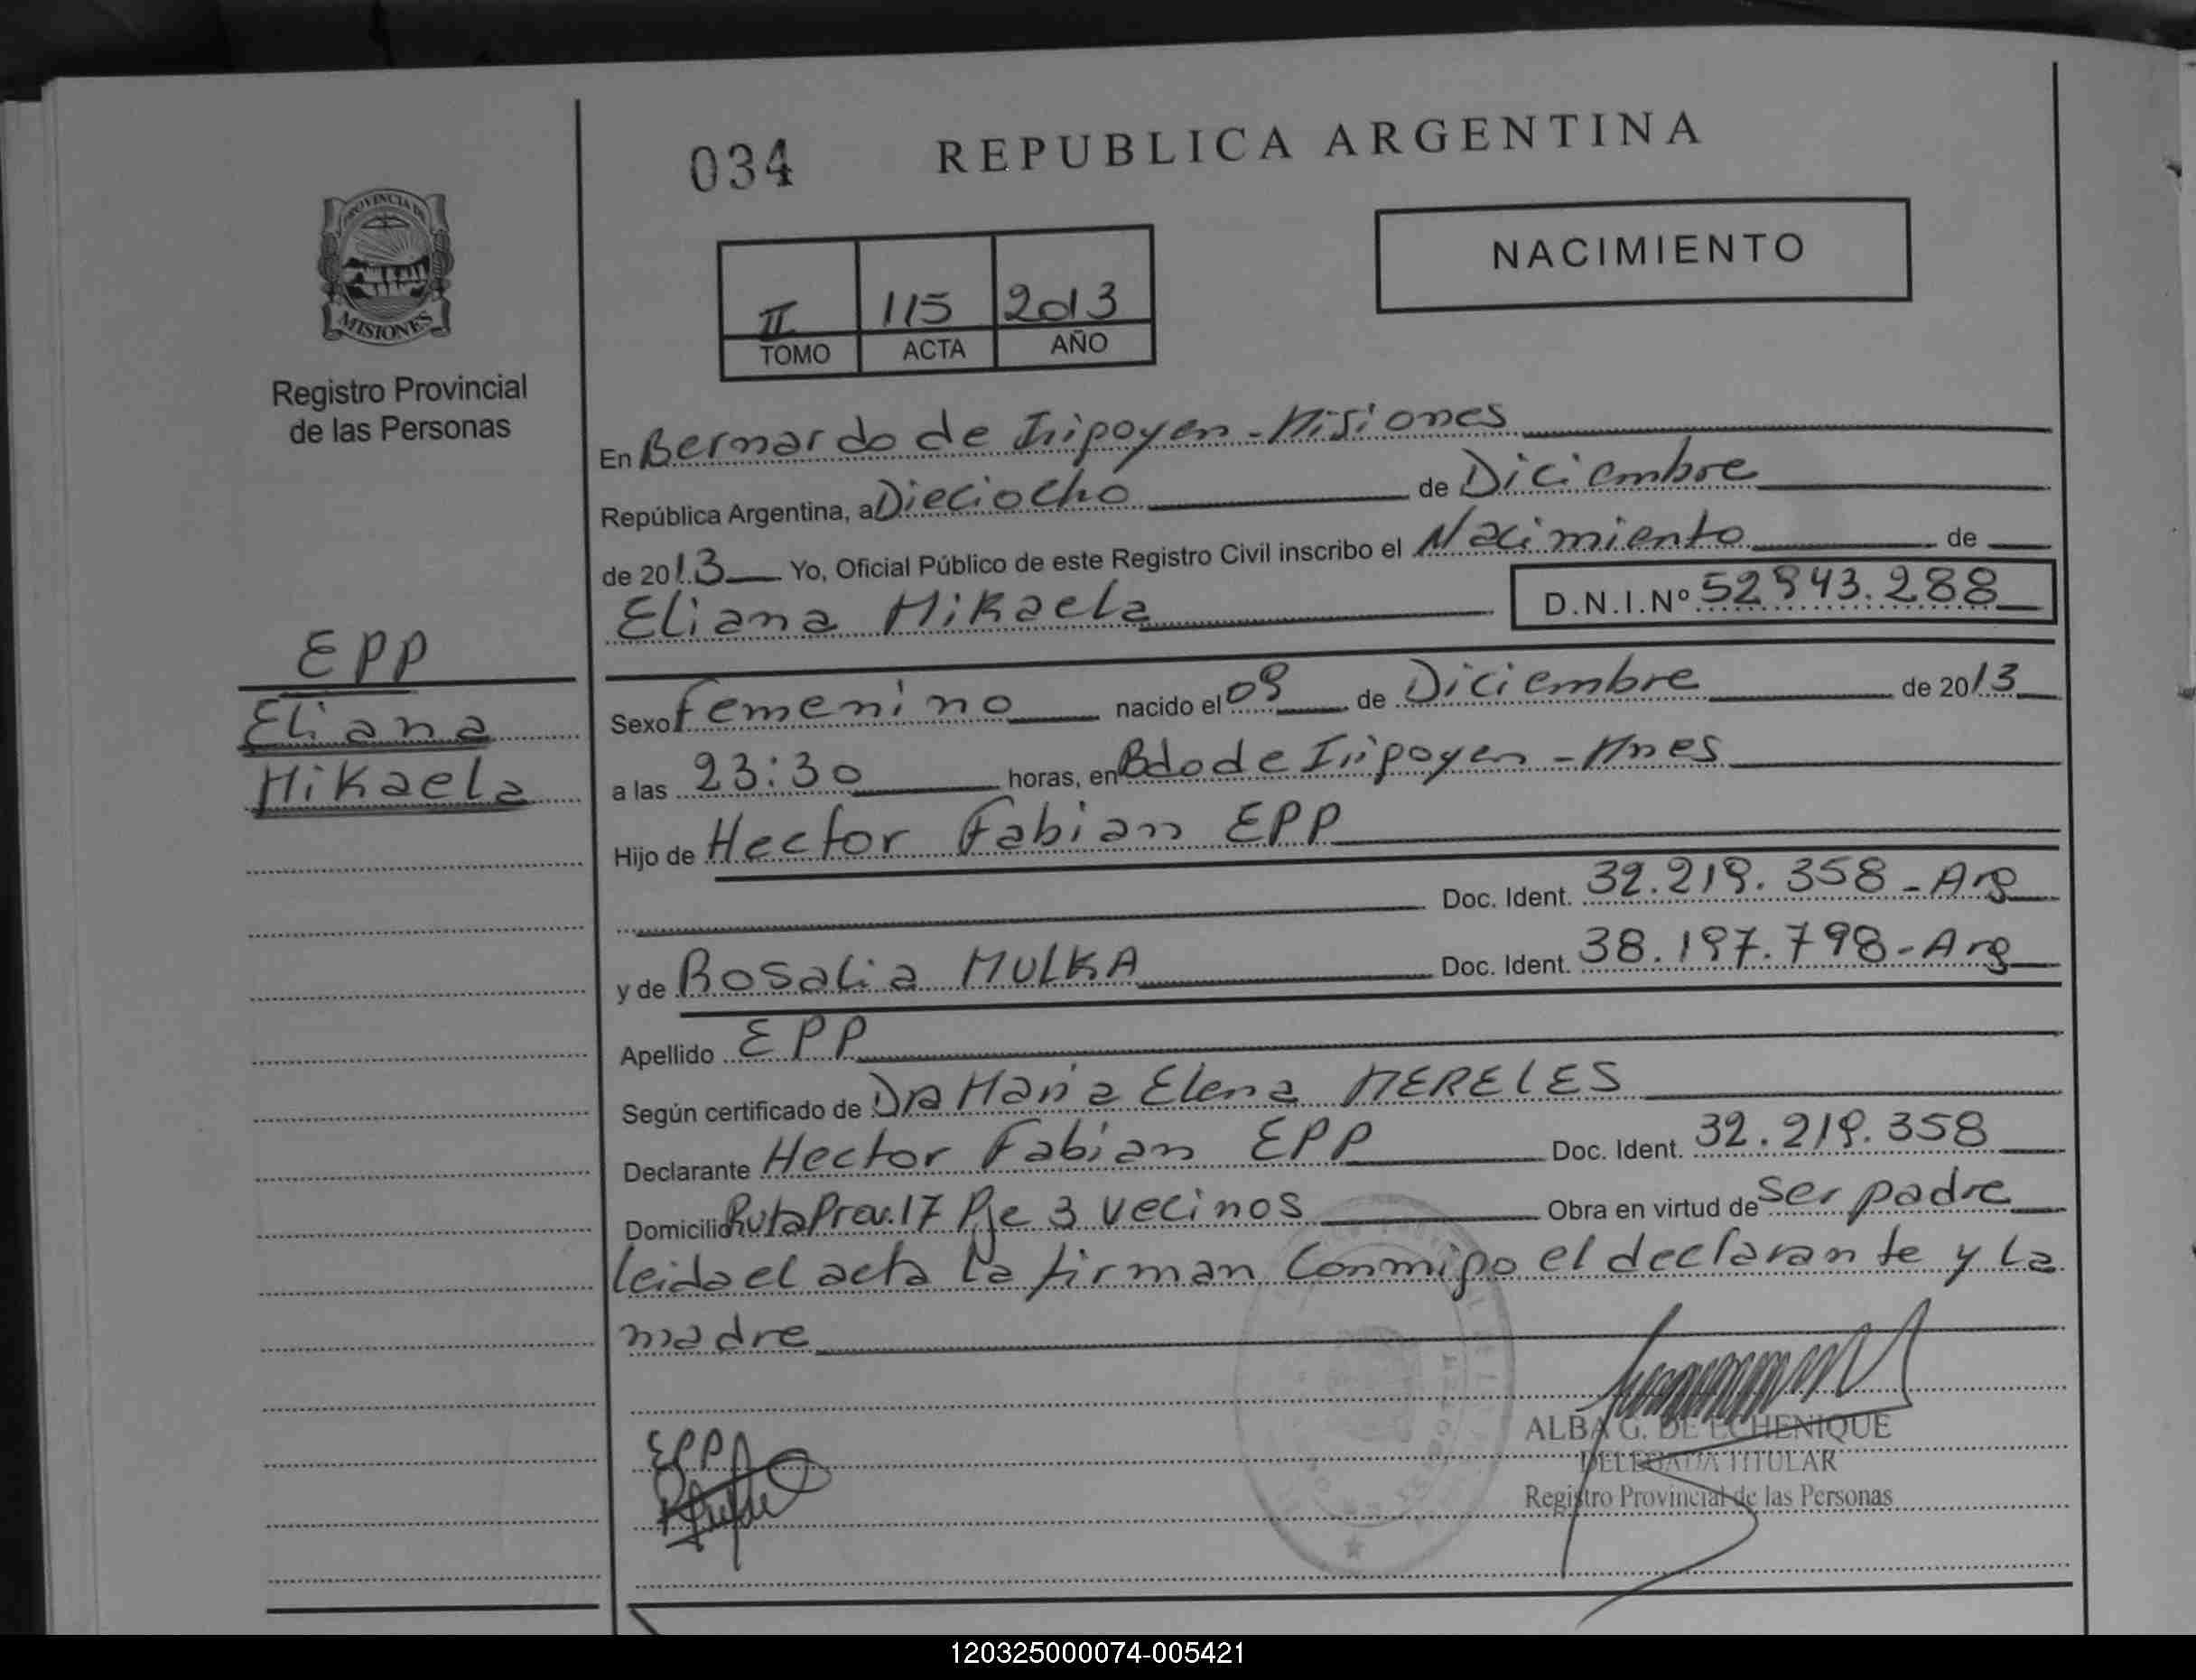 034 REPUBLICA ARGENTINA
PROVINCIA DE
MISIONES
Registro Provincial
de las Personas
NACIMIENTO
II 115 2013
TOMO ACTA AÑO
En Bernardo de Iripoyen - Misiones
República Argentina, a Dieciocho de Diciembre
de 2013 Yo, Oficial Público de este Registro Civil inscribo el Nacimiento de
Eliana Mikaela D.N.I.Nº 52943.288
EPP
Eliana
Mikaela
Sexo Femenino nacido el 09 de Diciembre de 2013
a las 23:30 horas, en Bdo de Iripoyen - Mnes
Hijo de Hector Fabian EPP
Doc. Ident. 32.219.358 - Arg
y de Rosalia MULKA Doc. Ident. 38.197.798 - Arg
Apellido EPP
Según certificado de Dra Maria Elena MERELES
Declarante Hector Fabian EPP Doc. Ident. 32.219.358
Domicilio Ruta Prov. 17 Pje 3 vecinos Obra en virtud de ser padre
leida el acta la firman conmigo el declarante y la
madre
EPP
ALBA G. DE ECHENIQUE
DELEGADA TITULAR
Registro Provincial de las Personas
120325000074-005421